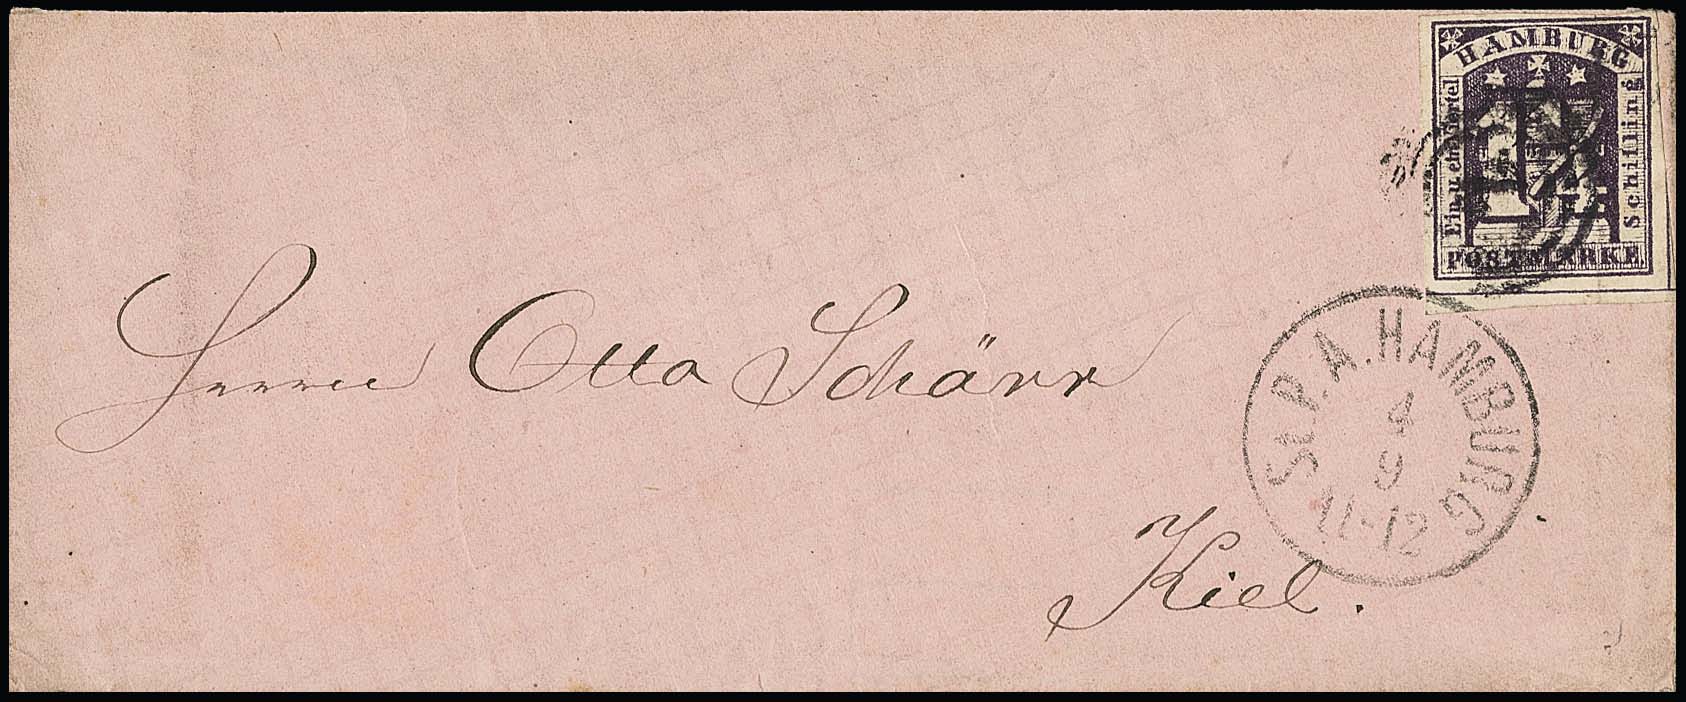 HAMBURG
Ein u. ein Viertel
Schilling
POSTMARKE
Herrn Otto Schärr
St.P.A. HAMBURG
4
9
11-12
Kiel.